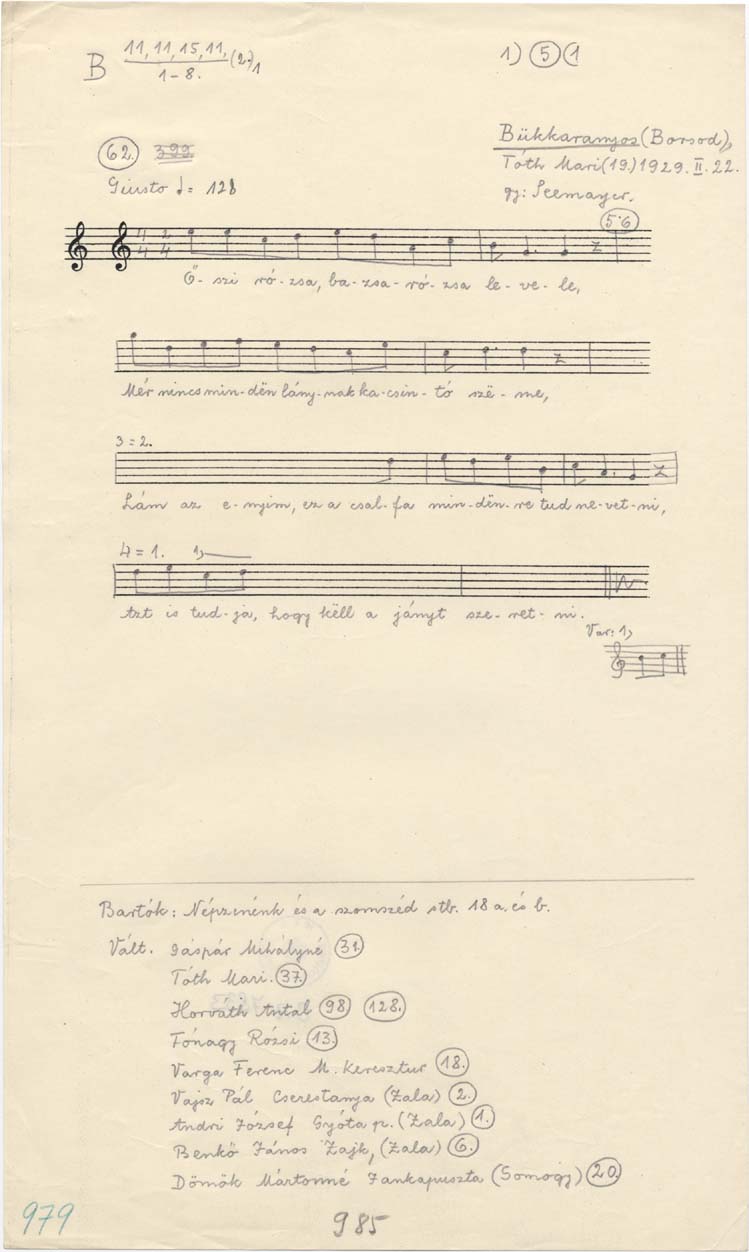 B 11, 11, 15, 11, (2.) 1
1–8.
1) (5) (1
62. 399
Bükkaranyos (Borsod),
Tóth Mari (19.) 1929. II. 22.
gy: Seemayer.
Giusto = 128
5·6
4/4 2/4
Ő- szi ró- zsa, ba- zsa- ró- zsa le- ve- le,
Mér nincs min- dën lány- nak ka- csin- tó szë- me,
3 = 2.
Lám az e- nyim, ez a csal- fa min- dën- re tud ne- vet- ni,
4 = 1. 1,
Azt is tud- ja, hogy këll a jányt sze- ret- ni.
Var: 1,
Bartók: Népzenénk és a szomszéd stb. 18 a. és b.
Vált. Gáspár Mihályné 31.
Tóth Mari. 37.
Horváth Antal 98 128.
Fónagy Rózsi 13.
Varga Ferenc M. Keresztur 18.
Vajsz Pál Cserestanya (Zala) 2.
Andri József Gyóta p. (Zala) 1.
Benkő János Zajk, (Zala) 6.
Dömök Mártonné Jankapuszta (Somogy) 20
979
985